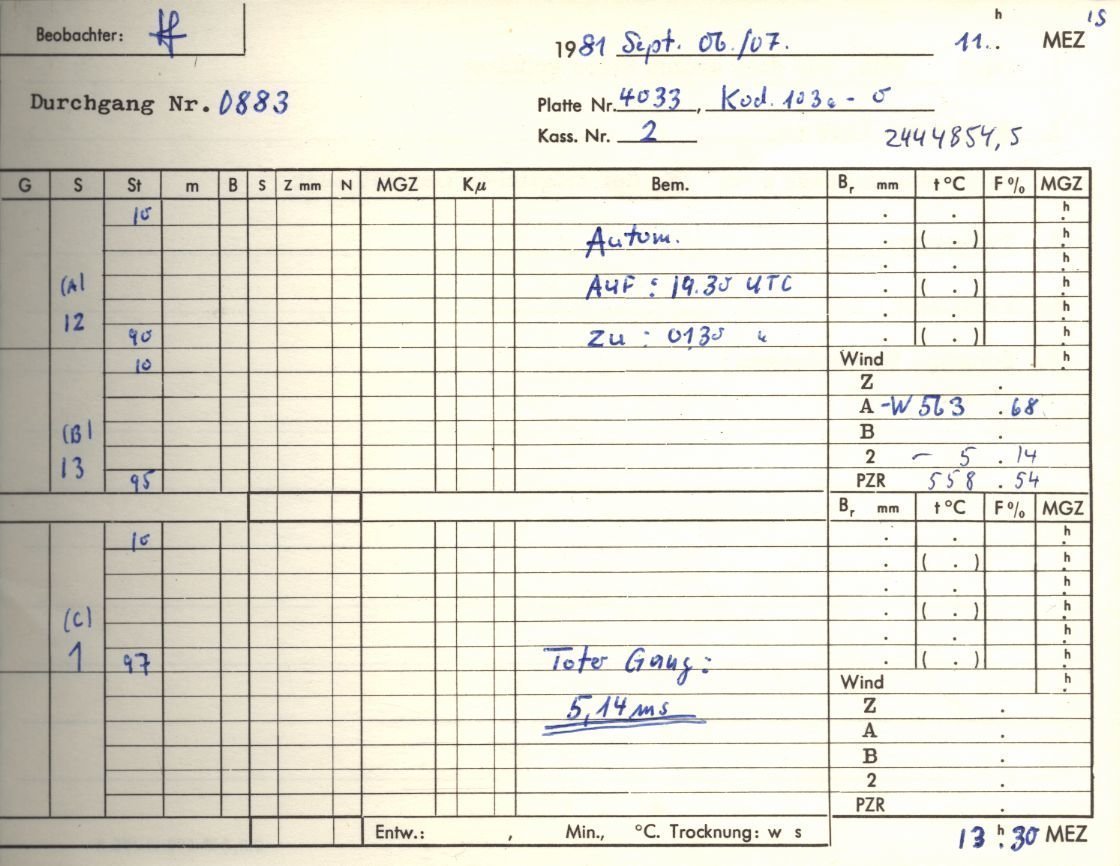 Beobachter:
1981 Sept. 06./07. 11 h .. MEZ 15
Durchgang Nr. 0883
Platte Nr. 4033, Kod. 103a - O
Kass. Nr. 2
2444854,5
G S St m B S Z mm N MGZ Kμ Bem. Br mm t °C F % MGZ
10 . . h .
Autom. . ( . ) h .
. . h .
(A) Auf : 19.30 UTC . ( . ) h .
12 . . h .
90 Zu : 0130 " . ( . ) h .
10 Wind h .
Z .
A -W 563 . 68
(B) B .
13 2 - 5 . 14
95 PZR 558 . 54
Br mm t °C F % MGZ
10 . . h .
. ( . ) h .
. . h .
(C) . ( . ) h .
. . h .
1 97 Toter Gang: . ( . ) h .
Wind h .
5,14 ms Z .
A .
B .
2 .
PZR .
Entw.: , Min., °C. Trocknung: w s
13 h . 30 MEZ